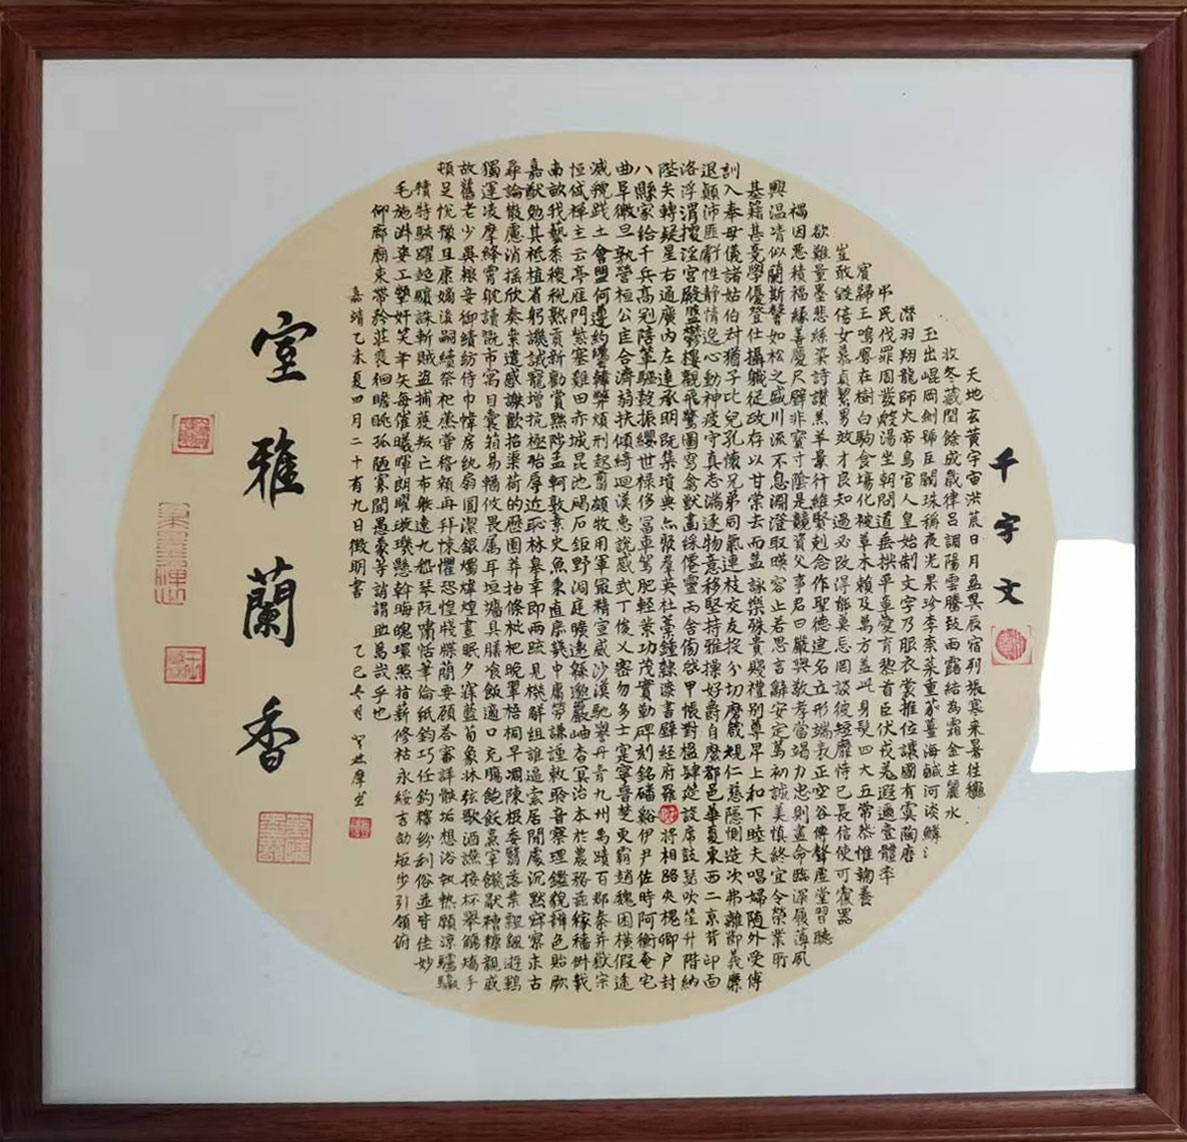 千字文
天地玄黃宇宙洪荒日月盈昃辰宿列張寒來暑往穐
收冬藏閏餘成歲律呂調陽雲騰致雨露結為霜金生麗水
玉出崐岡劍號巨闕珠稱夜光果珍李柰菜重芥薑海鹹河淡鱗
潛羽翔龍師火帝鳥官人皇始制文字乃服衣裳推位讓國有虞陶唐
弔民伐罪周發殷湯坐朝問道垂拱平章愛育黎首臣伏戎羌遐邇壹體率
賓歸王鳴鳳在樹白駒食場化被草木賴及萬方蓋此身髮四大五常恭惟鞠養
豈敢毀傷女慕貞絜男效才良知過必改得能莫忘罔談彼短靡恃己長信使可覆器
欲難量墨悲絲染詩讚羔羊景行維賢剋念作聖德建名立形端表正空谷傳聲虛堂習聽
禍因惡積福緣善慶尺璧非寶寸陰是競資父事君曰嚴與敬孝當竭力忠則盡命臨深履薄夙
興溫凊似蘭斯馨如松之盛川流不息淵澄取暎容止若思言辭安定篤初誠美慎終宜令榮業所
基籍甚無竟學優登仕攝職從政存以甘棠去而益詠樂殊貴賤禮別尊卑上和下睦夫唱婦隨外受傅
訓入奉母儀諸姑伯叔猶子比兒孔懷兄弟同氣連枝交友投分切磨箴規仁慈隱惻造次弗離節義廉
退顛沛匪虧性靜情逸心動神疲守真志滿逐物意移堅持雅操好爵自縻都邑華夏東西二京背邙面
洛浮渭據涇宮殿盤鬱樓觀飛驚圖寫禽獸畫綵僊靈丙舍傍啓甲帳對楹肆筵設席鼓瑟吹笙升階納
陛弁轉疑星右通廣內左達承明既集墳典亦聚群英杜稾鍾隸漆書壁經府羅將相路俠槐卿戶封
八縣家給千兵高冠陪輦驅轂振纓世祿侈富車駕肥輕策功茂實勒碑刻銘磻谿伊尹佐時阿衡奄宅
曲阜微旦孰營桓公匡合濟弱扶傾綺迴漢惠說感武丁俊乂密勿多士寔寧晉楚更霸趙魏困橫假途
滅虢踐土會盟何遵約法韓弊煩刑起翦頗牧用軍最精宣威沙漠馳譽丹青九州禹蹟百郡秦并嶽宗
恒岱禪主云亭雁門紫塞雞田赤城昆池碣石鉅野洞庭曠遠緜邈巖岫杳冥治本於農務茲稼穡俶載
南畝我藝黍稷稅熟貢新勸賞黜陟孟軻敦素史魚秉直庶幾中庸勞謙謹敕聆音察理鑑貌辨色貽厥
嘉猷勉其祗植省躬譏誡寵增抗極殆辱近恥林皋幸即兩疏見機解組誰逼索居閒處沉默寂寥求古
尋論散慮逍遙欣奏累遣慼謝歡招渠荷的歷園莽抽條枇杷晚翠梧桐早凋陳根委翳落葉飄颻遊鵾
獨運凌摩絳霄耽讀翫市寓目囊箱易輶攸畏屬耳垣牆具膳飡飯適口充腸飽飫烹宰飢厭糟糠親戚
故舊老少異糧妾御績紡侍巾帷房紈扇圓潔銀燭煒煌晝眠夕寐藍筍象牀弦歌酒讌接杯舉觴矯手
頓足悅豫且康嫡後嗣續祭祀蒸嘗稽顙再拜悚懼恐惶牋牒簡要顧答審詳骸垢想浴執熱願涼驢騾
犢特駭躍超驤誅斬賊盜捕獲叛亡布射遼丸嵇琴阮嘯恬筆倫紙鈞巧任釣釋紛利俗並皆佳妙
毛施淑姿工顰妍笑年矢每催曦暉朗曜璇璣懸斡晦魄環照指薪修祜永綏吉劭矩步引領俯
仰廊廟束帶矜莊徘徊瞻眺孤陋寡聞愚蒙等誚謂助焉哉乎也
嘉靖乙未夏四月二十有九日徵明書 乙巳冬月
室雅蘭香